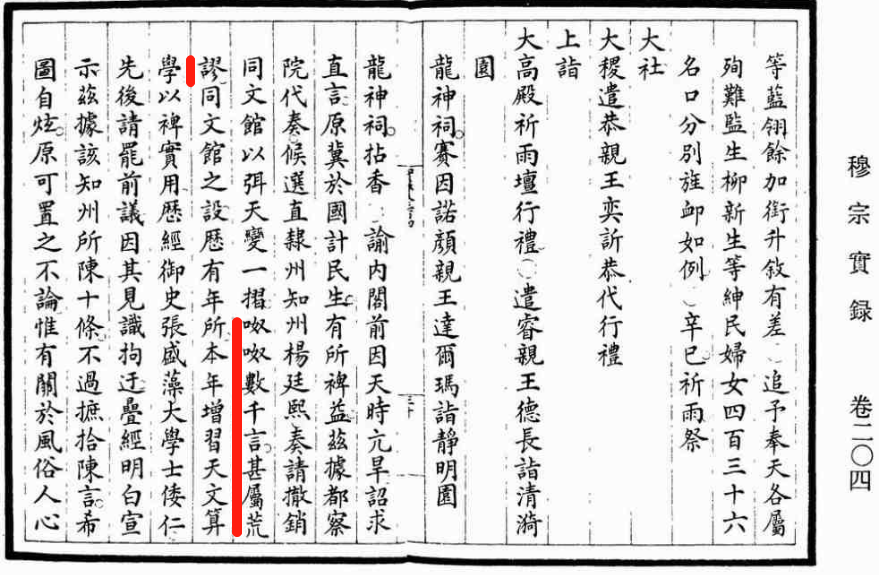 穆宗實錄 卷二〇四
等藍翎餘加銜升敘有差○追予奉天各屬
殉難監生柳新生等紳民婦女四百三十六
名口分別旌卹如例○辛巳祈雨祭
大社
大稷遣恭親王奕訢恭代行禮
上詣
大高殿祈雨壇行禮○遣睿親王德長詣清漪
園
龍神祠。賽因諾顏親王達爾瑪詣靜明園
龍神祠。拈香○諭內閣前因天時亢旱詔求
直言原冀於國計民生有所裨益。茲據都察
院代奏候選直隸州知州楊廷熙奏請撤銷
同文館以弭天變一摺呶呶數千言。甚屬荒
謬同文館之設歷有年所。本年增習天文算
學以裨實用歷經御史張盛藻大學士倭仁
先後請罷前議因其見識拘迂疊經明白宣
示茲據該知州所陳十條。不過摭拾陳言。希
圖自炫。原可置之不論惟有關於風俗人心
三十